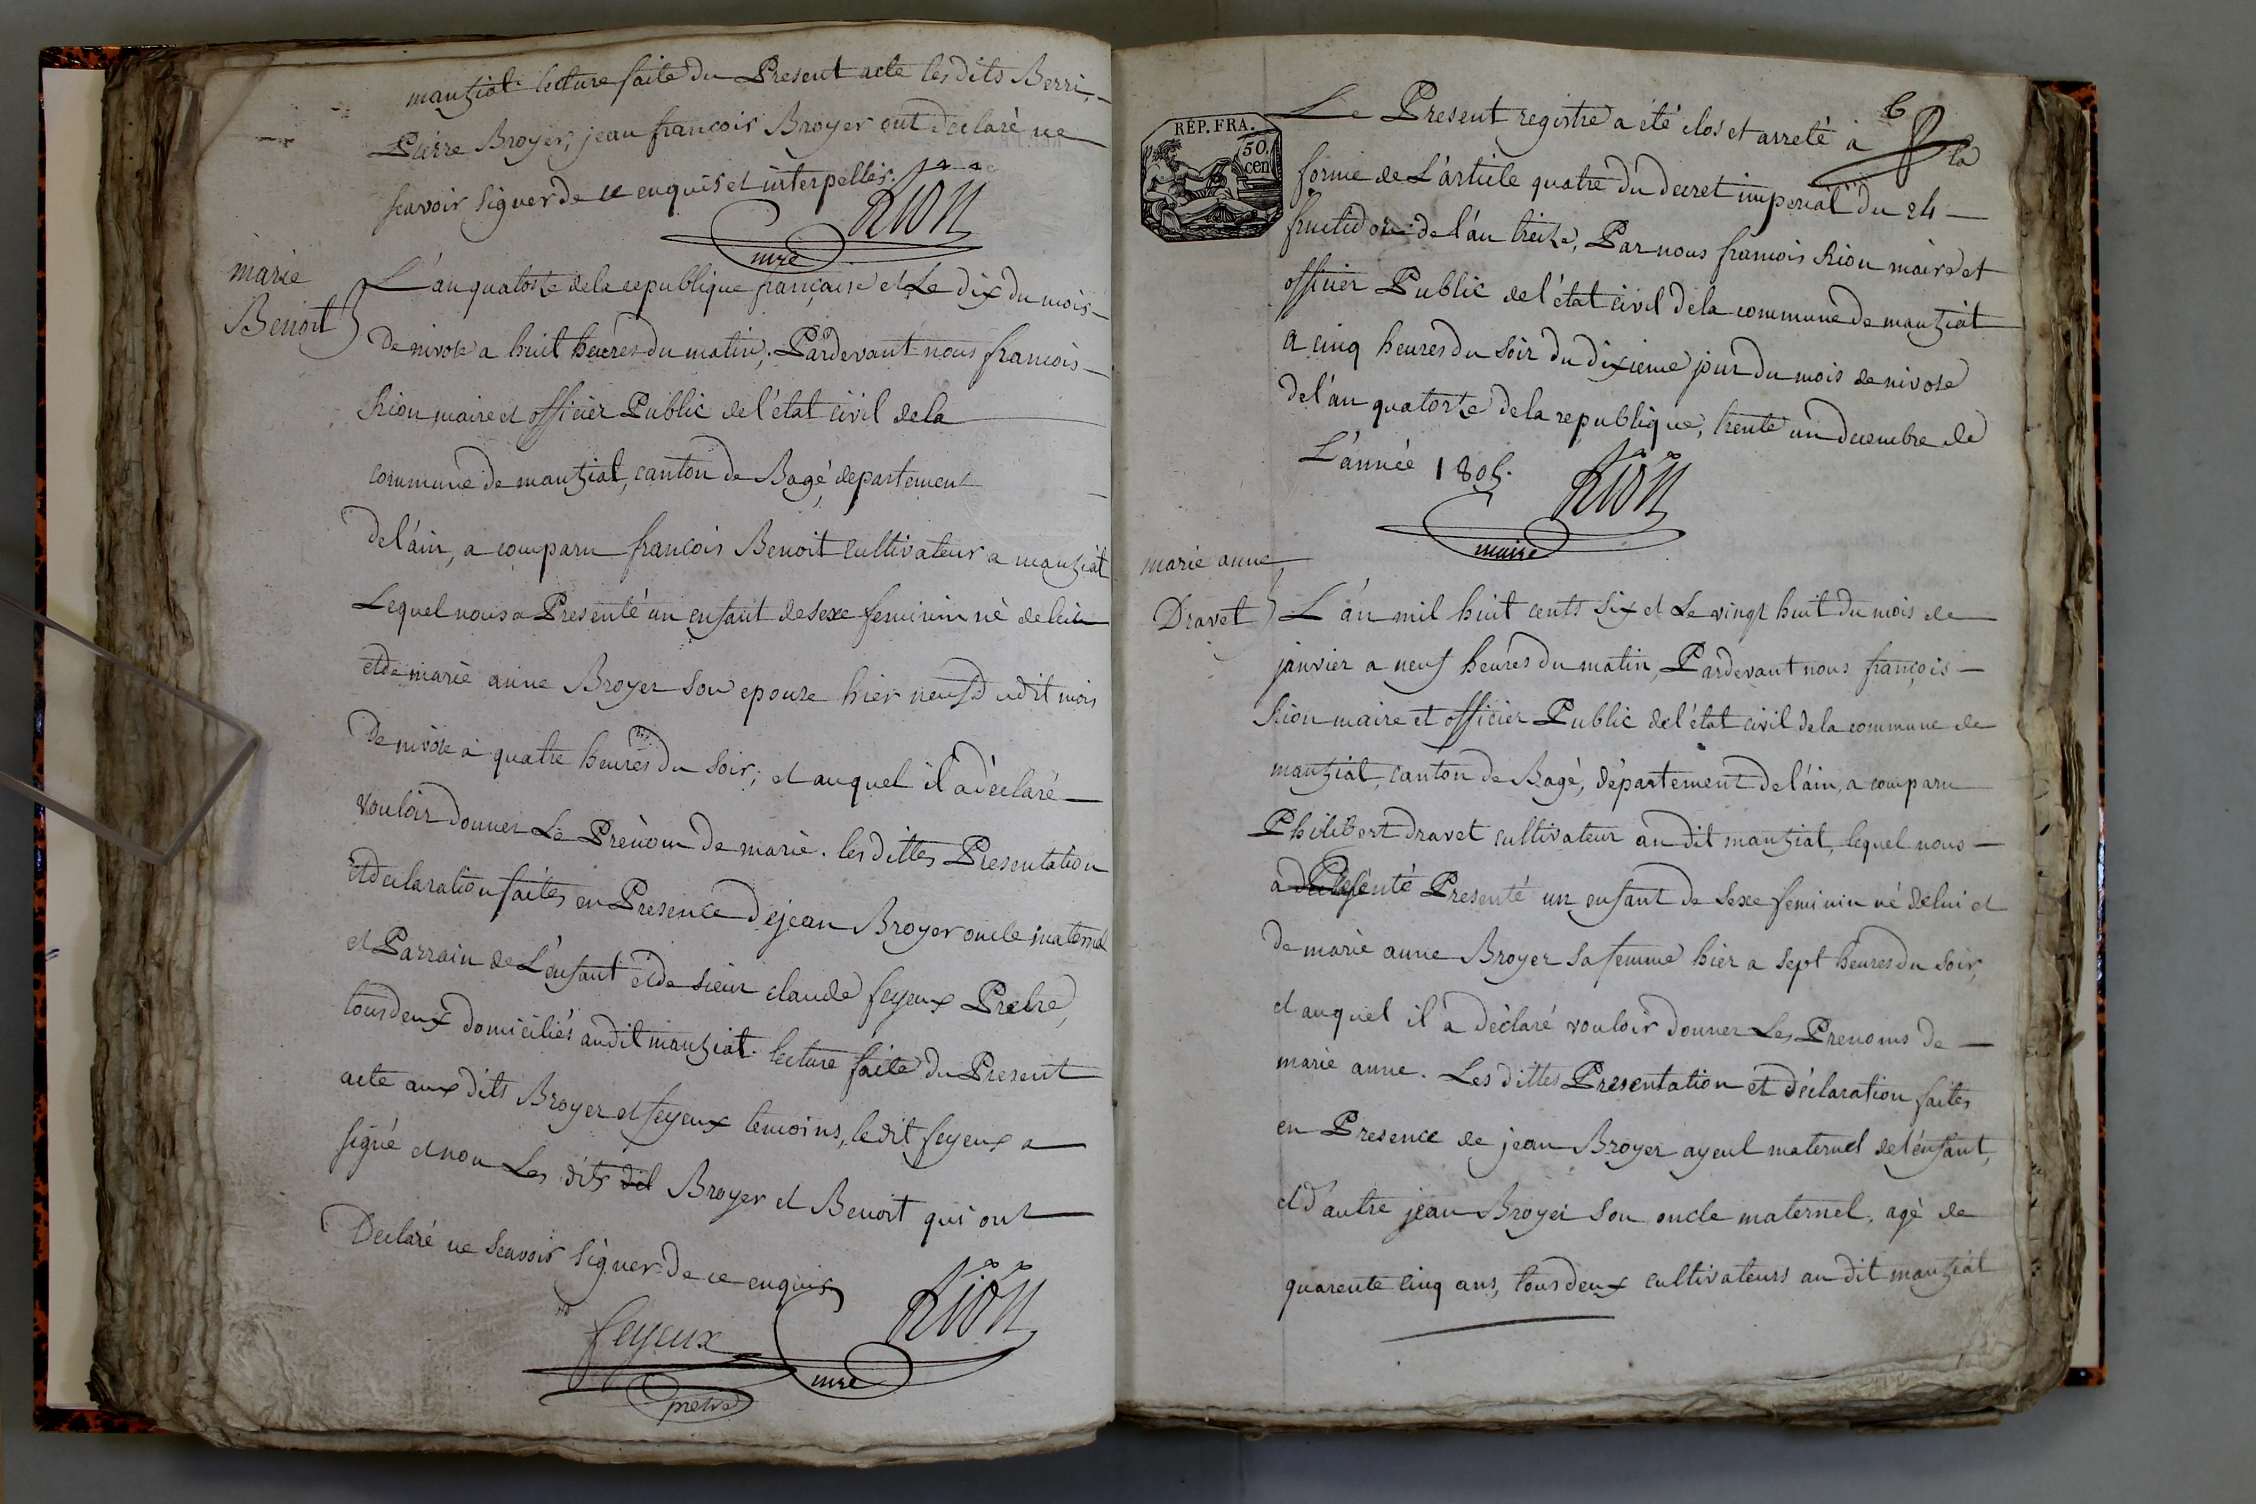 manziat lecture faite du Present acte les dits Berri,
Pierre Broyer, jean francois Broyer ont declaré ne
scavoir signer de ce enquis et interpellés.
Rion
mre
marie
Benoit
L'an quatorze de la republique française et Le dix du mois
de nivose a huit heures du matin, Pardevant nous francois
Rion maire et officier Public de l'état civil de la
commune de manziat, canton de Bagé, departement
de l'ain, a comparu francois Benoit cultivateur a manziat
Lequel nous a Presenté un enfant de sexe feminin né de lui
et de marie anne Broyer son epouze hier neuf dudit mois
de nivose a quatre heures du soir, et auquel il a déclaré
vouloir donner Le Prenom de marie. les dittes Presentation
et declaration faites en Presence de jean Broyer oncle maternel
et Parrain de L'enfant et de sieur claude feyeux Pretre,
tous deux domiciliés audit manziat. lecture faite du Present
acte aux dits Broyer et feyeux temoins, ledit feyeux a
signé et non Les dits dit Broyer et Benoit qui ont
Declaré ne scavoir signer de ce enquis
feyeux
pretre
Rion
mre
RÉP. FRA.
50
cen
Le Present registre a été clos et arreté à la
forme de L'article quatre du decret imperial du 24
fructidor de l'an treize, Par nous francois Rion maire et
officier Public de l'état civil de la commune de manziat
a cinq heures du soir du dixieme jour du mois de nivose
de l'an quatorze de la republique, trente un decembre de
L'année 1805.
Rion
maire
marie anne
Dravet
L'an mil huit cents six et Le vingt huit du mois de
janvier a neuf heures du matin, Pardevant nous françois
Rion maire et officier Public de l'état civil de la commune de
manziat, canton de Bagé, département de l'ain, a comparu
Philibert dravet cultivateur au dit manziat, lequel nous
a Presenté un enfant de sexe feminin né de lui et
de marie anne Broyer sa femme hier a sept heures du soir,
et auquel il a déclaré vouloir donner Les Prenoms de
marie anne. Les dittes Presentation et déclaration faites
en Presence de jean Broyer ayeul maternel de l'enfant,
et d'autre jean Broyer son oncle maternel, agé de
quarente cinq ans, tous deux cultivateurs au dit manziat